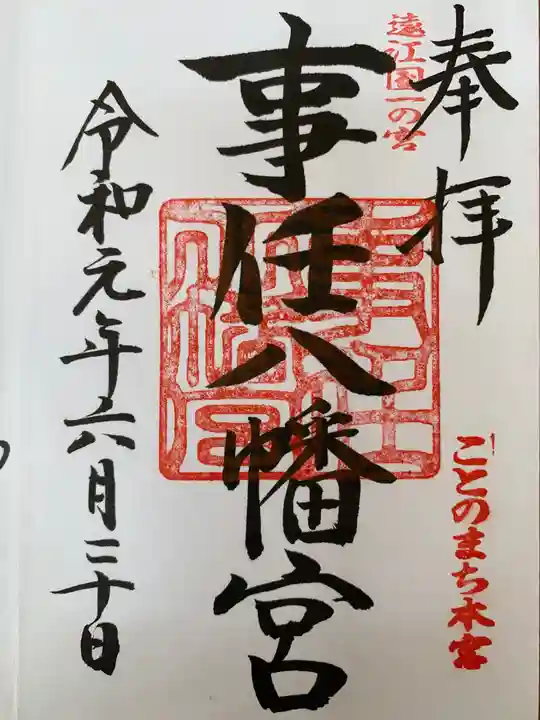 奉拝
遠江国一の宮
ことのまち本宮
事任八幡宮
令和元年六月三十日